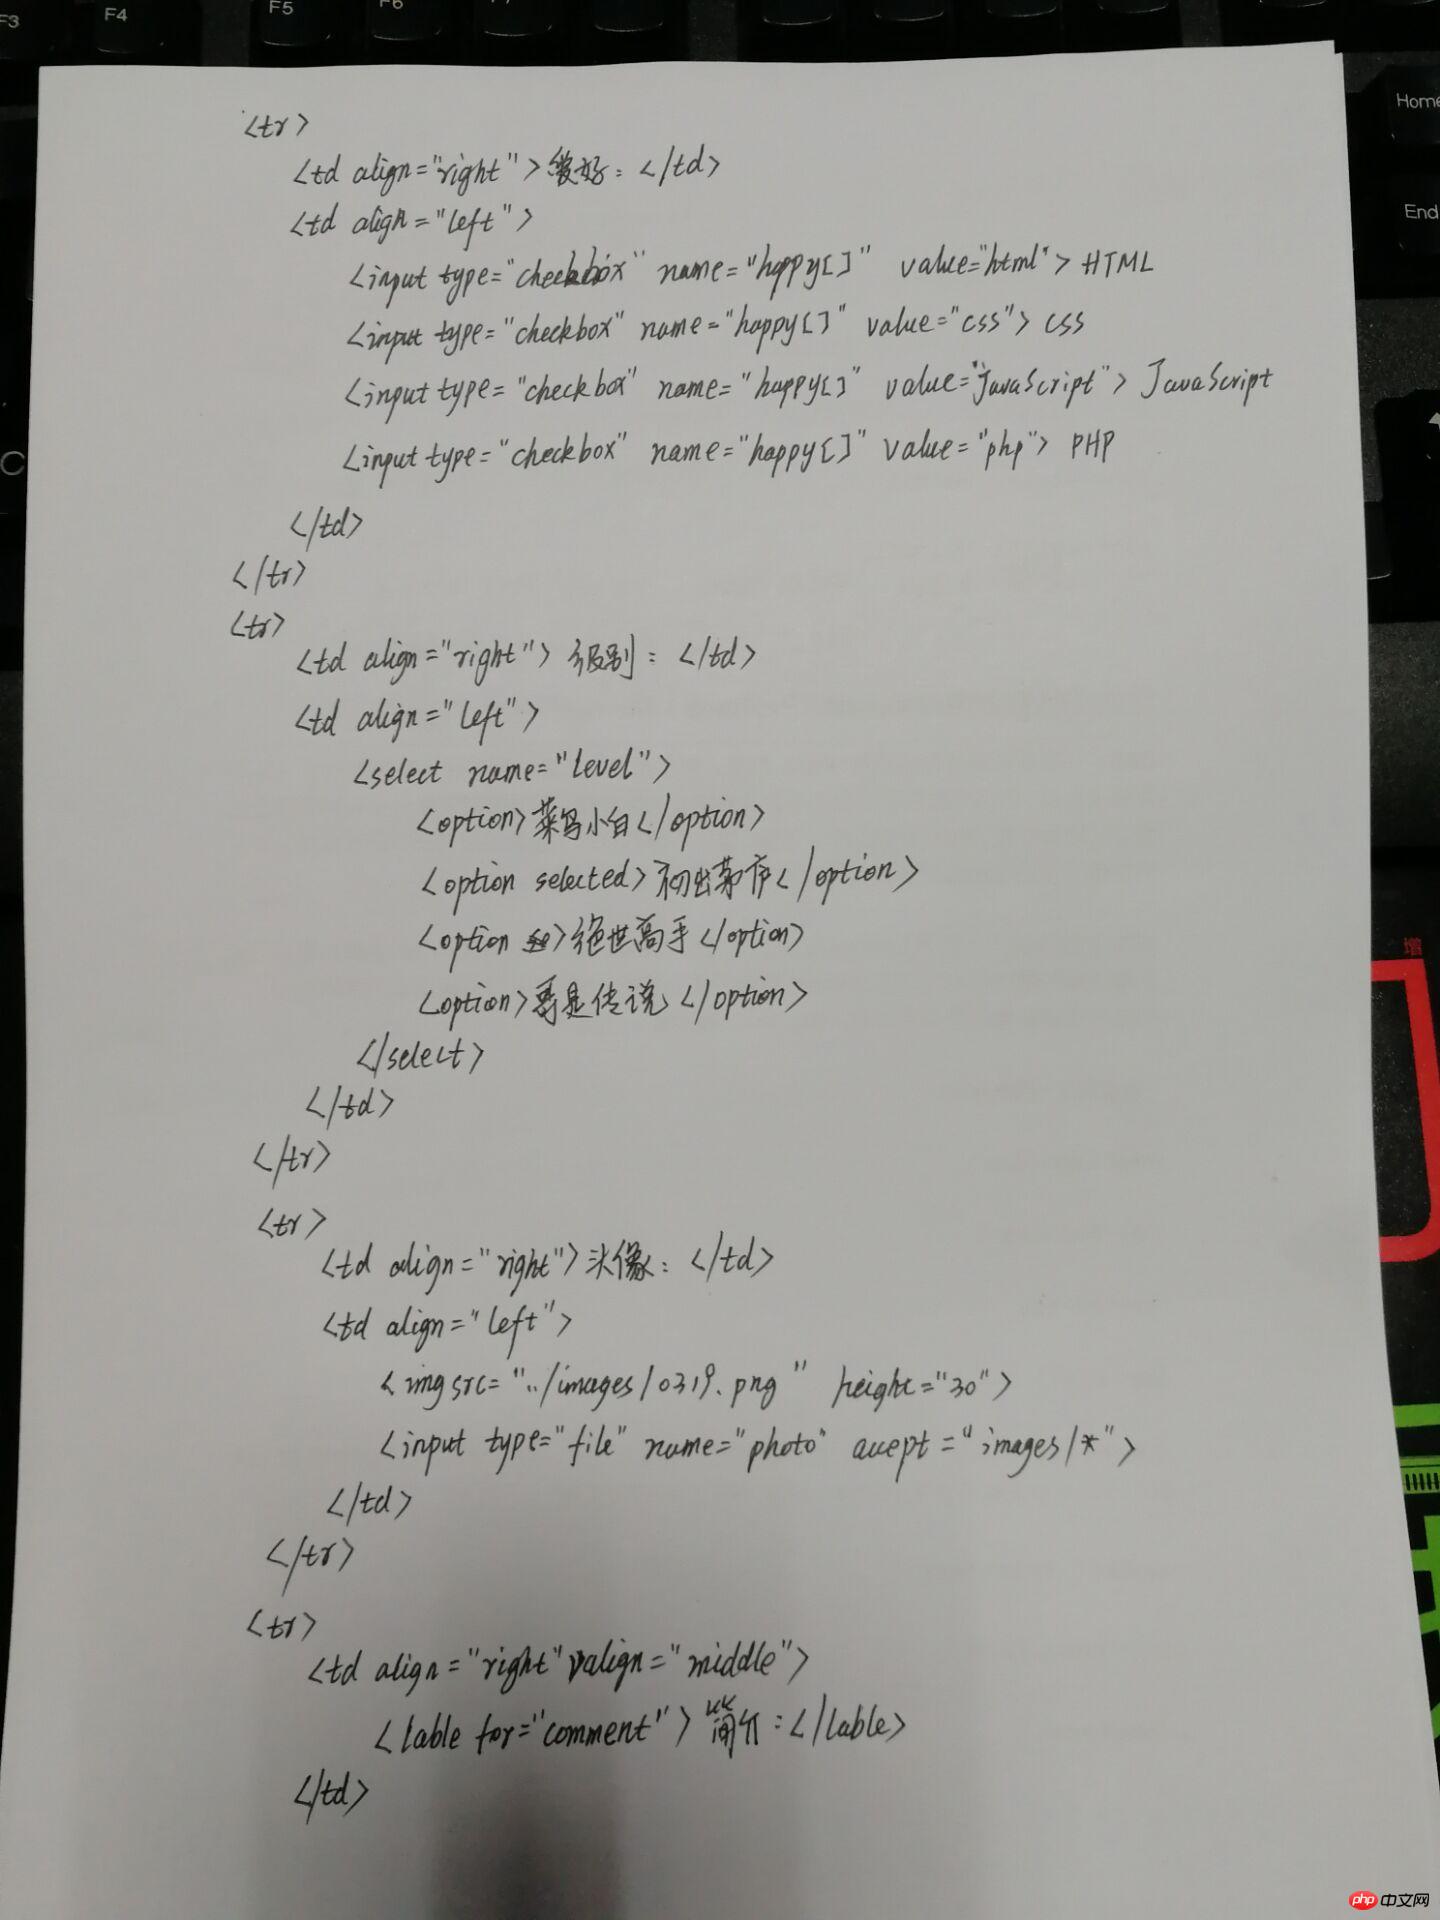 F3
F4
F5
F6
Home
End
C
<tr>
<td align="right">爱好：</td>
<td align="left">
<input type="checkbox" name="happy[]" value="html"> HTML
<input type="checkbox" name="happy[]" value="css"> CSS
<input type="checkbox" name="happy[]" value="JavaScript"> JavaScript
<input type="checkbox" name="happy[]" value="php"> PHP
</td>
</tr>
<tr>
<td align="right">级别：</td>
<td align="left">
<select name="level">
<option>菜鸟小白</option>
<option selected>初出茅庐</option>
<option>绝世高手</option>
<option>是传说</option>
</select>
</td>
</tr>
<tr>
<td align="right">头像：</td>
<td align="left">
<img src="../images/0319.png" height="30">
<input type="file" name="photo" accept="images/*">
</td>
</tr>
<tr>
<td align="right" valign="middle">
<lable for="comment">简介：</lable>
</td>
增
php 中文网